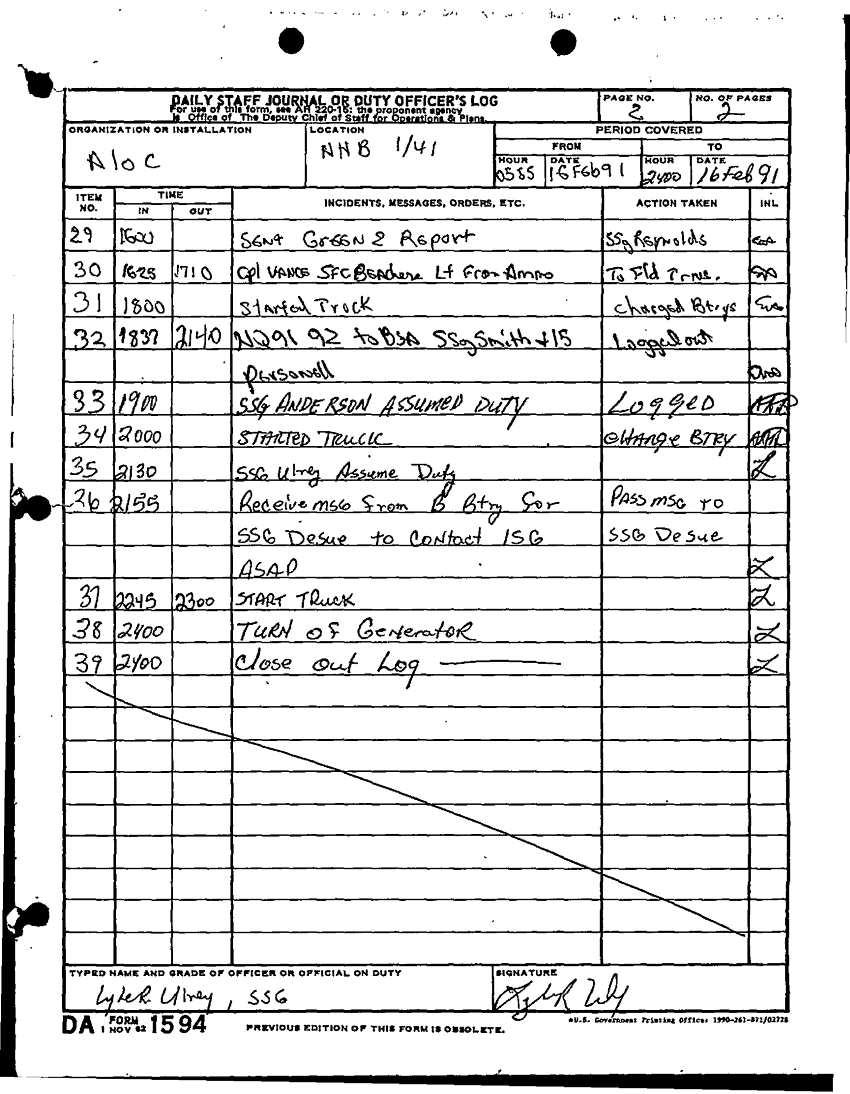 DAILY STAFF JOURNAL OR DUTY OFFICER'S LOG
For use of this form, see AR 220-15; the proponent agency
is Office of The Deputy Chief of Staff for Operations & Plans.
PAGE NO.
2
NO. OF PAGES
2
ORGANIZATION OR INSTALLATION
ALOC
LOCATION
NNB 1/41
PERIOD COVERED
FROM
TO
HOUR
DATE
16Feb91
HOUR
2400
DATE
16Feb91
ITEM NO.
TIME
IN
OUT
INCIDENTS, MESSAGES, ORDERS, ETC.
ACTION TAKEN
INL
29 1600 Sent GREEN 2 Report SSg Reynolds
30 1625 1710 Cpl VANCE SFC Lt From Ammo To Fld Trns.
31 1800 Started Truck charged Btrys
32 1837 2140 NQ91 92 to BSA SSg Smith + 15 Logged out
personell
33 1900 SSG ANDERSON ASSUMED DUTY LOGGED
34 2000 STARTED TRUCK CHANGE BTRY
35 2130 SSG Ulrey Assume Duty
36 2155 Receive msg from B Btry for PASS msg TO
SSG Desue to Contact 1SG SSG Desue
ASAP
37 2245 2300 START TRUCK
38 2400 TURN of Generator
39 2400 Close Out Log
TYPED NAME AND GRADE OF OFFICER OR OFFICIAL ON DUTY
Lyle R. Ulrey, SSG
SIGNATURE
Lyle R Ulrey
DA FORM 1 NOV 62 1594
PREVIOUS EDITION OF THIS FORM IS OBSOLETE.
*U.S. Government Printing Office: 1990-261-871/02728